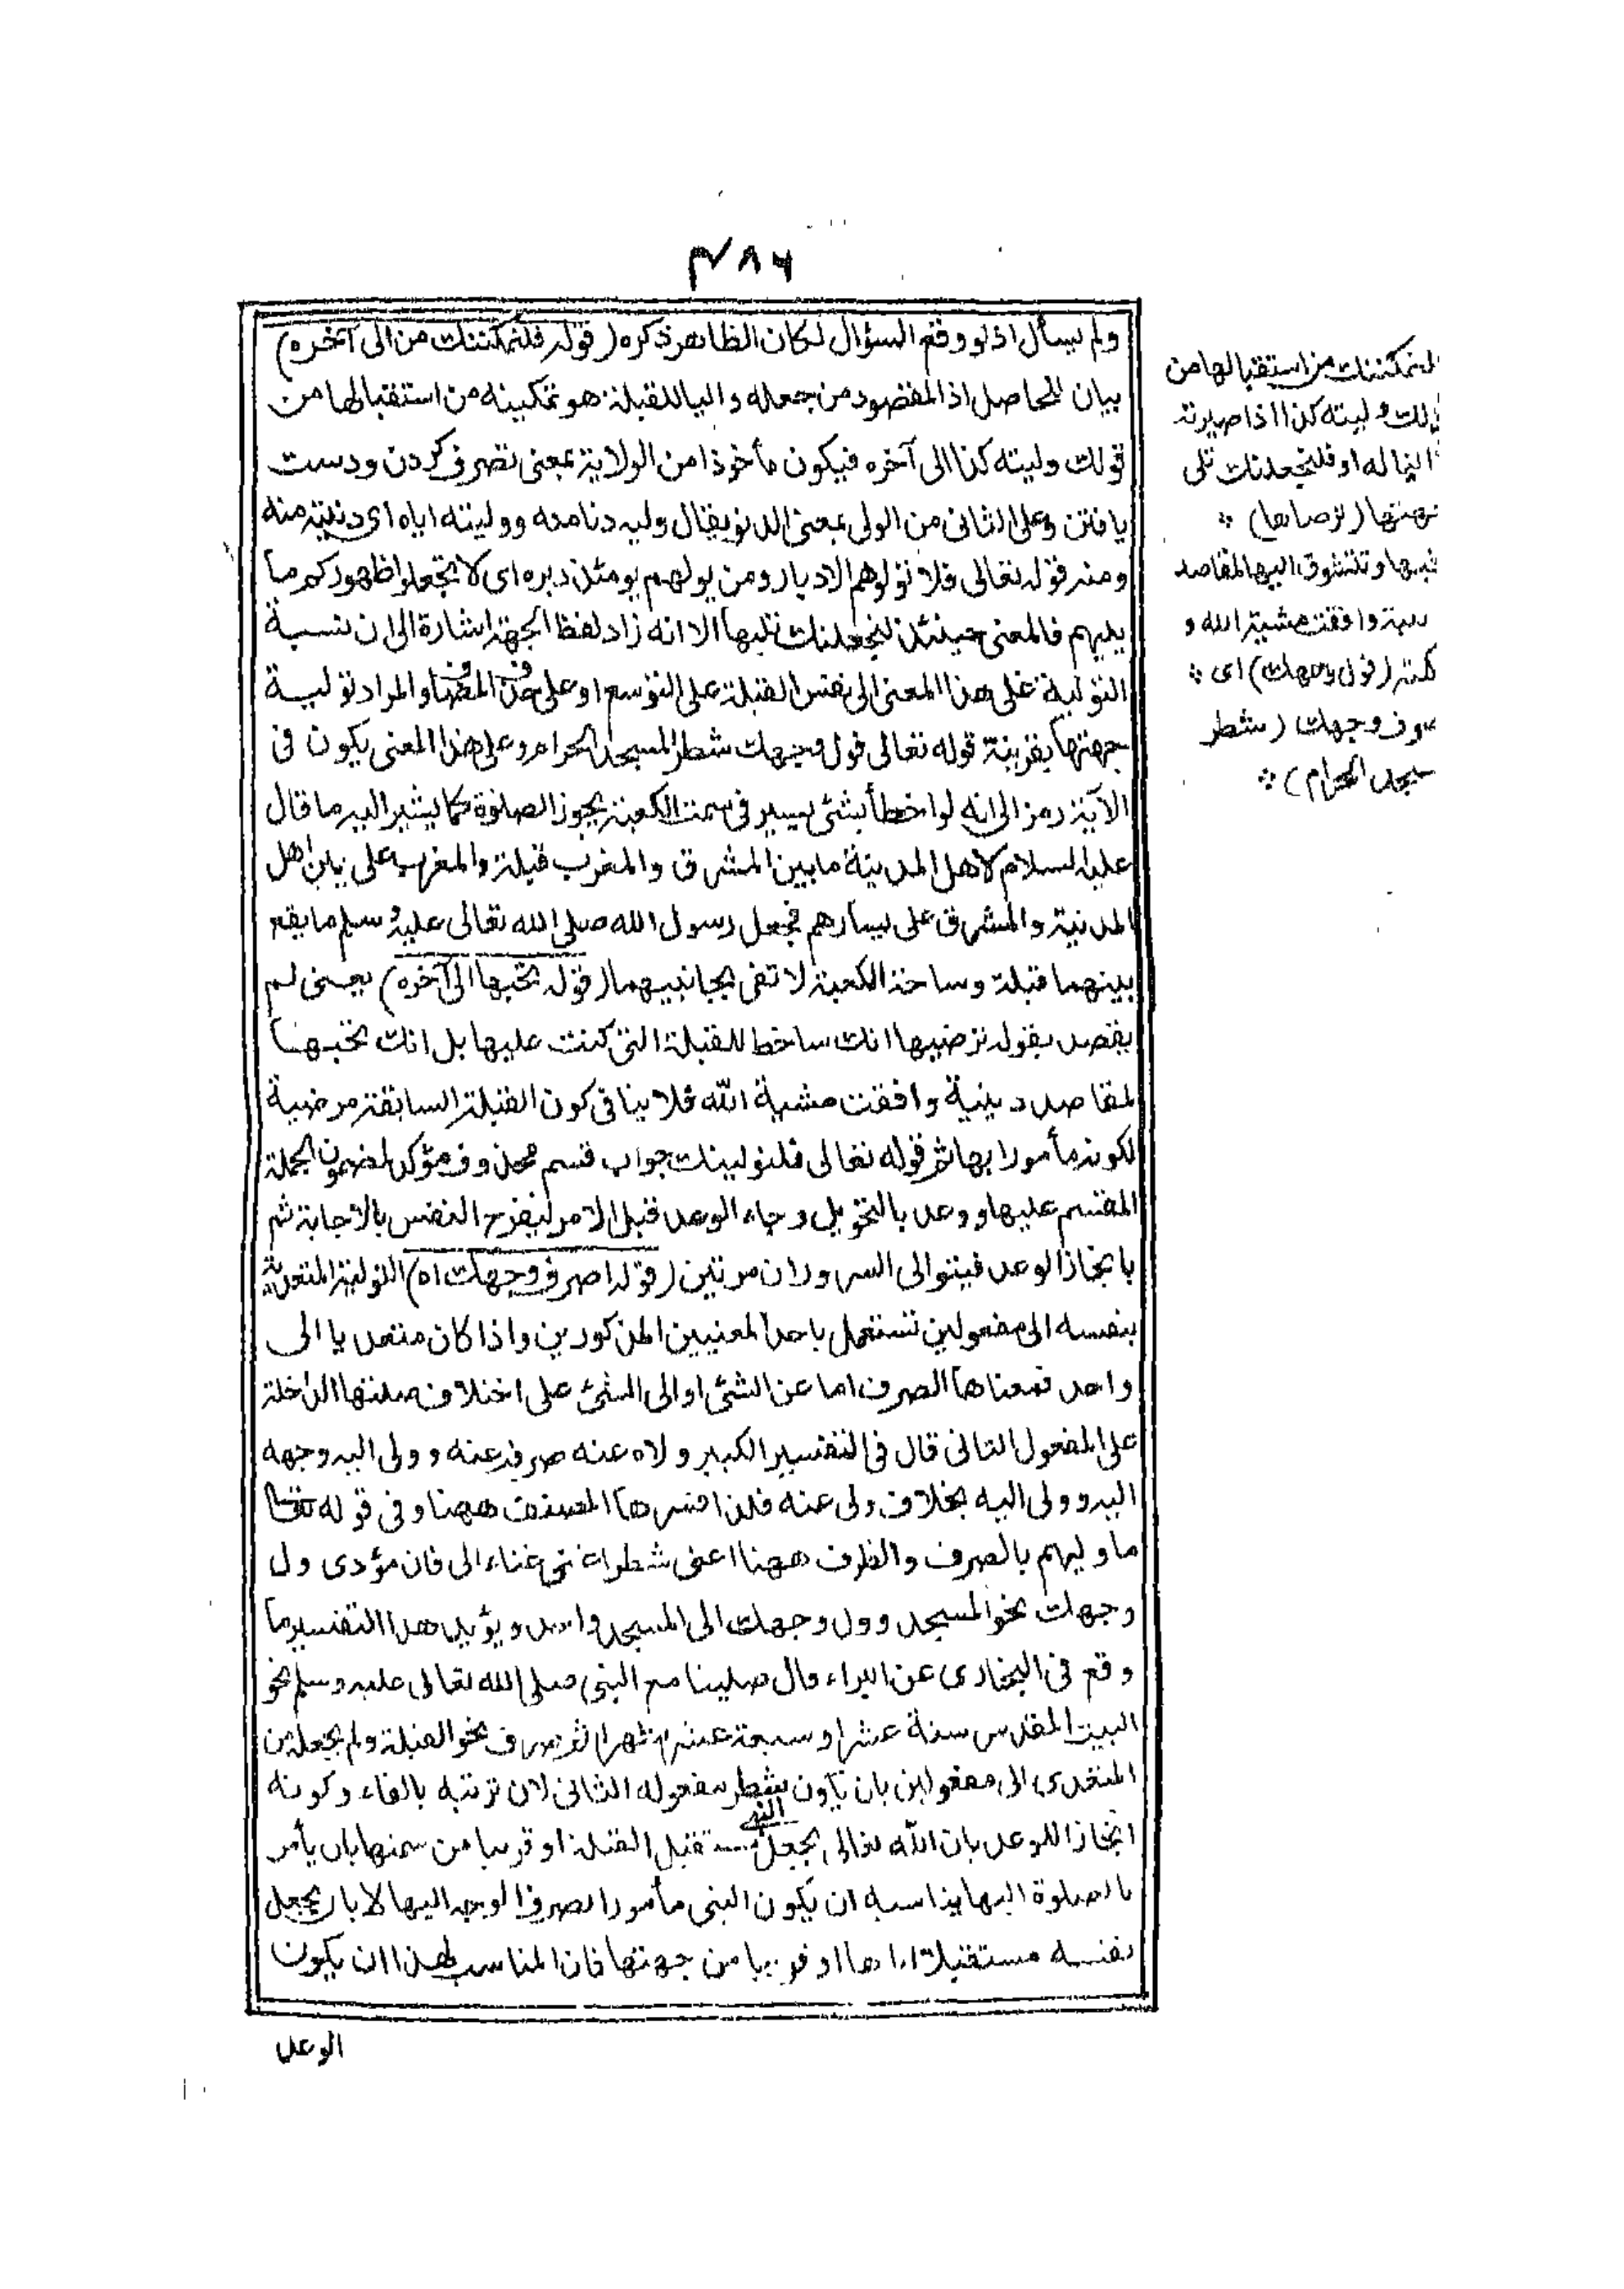 ٤٨٦
ولم يسأل اذ لو وقع السؤال لكان الظاهر ذكره (قوله فلنمكننك من الى آخره)
بيان لحاصل اذ المقصود من جعله واليا للقبلة هو تمكينه من استقبالها من
قولك وليته كذا الى آخره فيكون مأخوذا من الولاية بمعنى تصرف كردن ودست
يافتن وعلى الثانى من الولى بمعنى الدنو يقال وليه دنا منه ووليته اياه اى دنيته منه
ومنه قوله تعالى فلا تولوهم الادبار ومن يولهم يومئذ دبره اى لا تجعلوا ظهوركم مما
يليهم فالمعنى حينئذ لنجعلنك تليها الا انه زاد لفظ الجهة اشارة الى ان نسبة
التولية على هذا المعنى الى نفس القبلة على التوسع او على حذف المضاف والمراد تولية
جهتها بقرينة قوله تعالى فول وجهك شطر المسجد الحرام وعلى هذا المعنى يكون فى
الآية رمز الى انه لو اخطأ بشئ يسير فى سمت الكعبة يجوز الصلوة كما يشير اليه ما قال
عليه السلام لاهل المدينة ما بين المشرق والمغرب قبلة والمغرب على يمين اهل
المدنية والمشرق على يسارهم فجعل رسول الله صلى الله تعالى عليه وسلم ما يقع
بينهما قبلة وساحة الكعبة لا تفى بجانبيهما (قوله تحبها الى آخره) يعنى لم
يقصد بقوله ترضيها انك ساخط للقبلة التى كنت عليها بل انك تحبها
لمقاصد دينية وافقت مشية الله فلا ينافى كون القبلة السابقة مرضية
لكونه مأمورا بها ثم قوله تعالى فلنولينك جواب قسم محذوف مؤكد لمضمون الجملة
المقسم عليها ووعد بالتحويل وجاء الوعد قبل الامر ليفرح النفس بالاجابة ثم
بانجاز الوعد فيتوالى السروران مرتين (قوله اصرف وجهك اه) التولية المتعدية
بنفسه الى مفعولين تستعمل باحد المعنيين المذكورين واذا كان متعديا الى
واحد فمعناها الصرف اما عن الشئ او الى الشئ على اختلاف صلتها الداخلة
على المفعول الثانى قال فى التفسير الكبير ولاه عنه صرفه عنه وولى اليه وجهه
اليه وولى اليه بخلاف ولى عنه فلذا فسرها المصنف ههنا وفى قوله تعا
ما وليهم بالصرف والظرف ههنا اعنى شطرا غنى غناء الى فان مؤدى ول
وجهك نحو المسجد وول وجهك الى المسجد واحد ويؤيد هذا التفسير ما
وقع فى البخارى عن البراء قال صلينا مع النبى صلى الله تعالى عليه وسلم نحو
البيت المقدس ستة عشر او سبعة عشر شهرا ثم صرف نحو القبلة ولم يجعله من
المتعدى الى مفعولين بان يكون شطر مفعوله الثانى لان ترتبه بالفاء وكونه
انجازا للوعد بان الله تعالى يجعل النبى مستقبل القبلة او قريبا من سمتها بان يأمر
بالصلوة اليها يناسبه ان يكون النبى مأمورا بصرف الوجه اليها لا بان يجعل
نفسه مستقبلا اياها او قريبا من جهتها فان المناسب لهذا ان يكون
الوعد
لنمكننك من استقبالها من
ولك وليته كذا اذا صيرته
اليا له او فلنجعلنك تلى
جهتها (ترضاها) ؞
تحبها وتتشوق اليها لمقاصد
دينية وافقت مشية الله و
كمته (فول وجهك) اى ؞
صرف وجهك (شطر
سجد الحرام) ؞